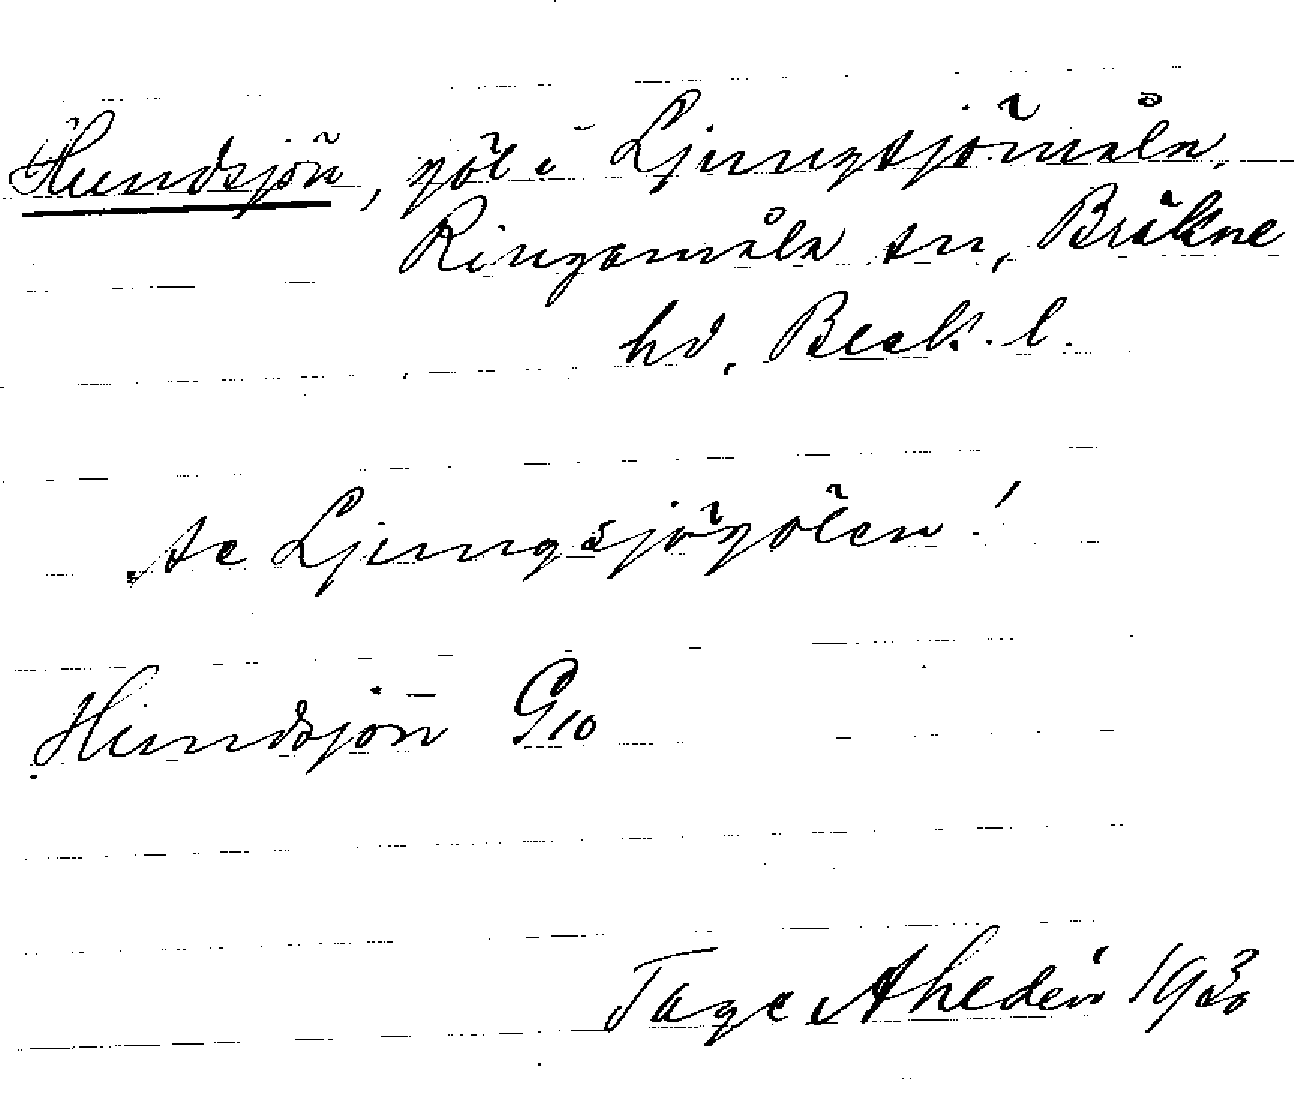 Hundsjön, göl i Ljungsjömåla,
Ringamåla sn, Bräkne
hd, Blek. l.
se Ljungsjögölen!
Hundsjön G10
Tage Ahedén 1930